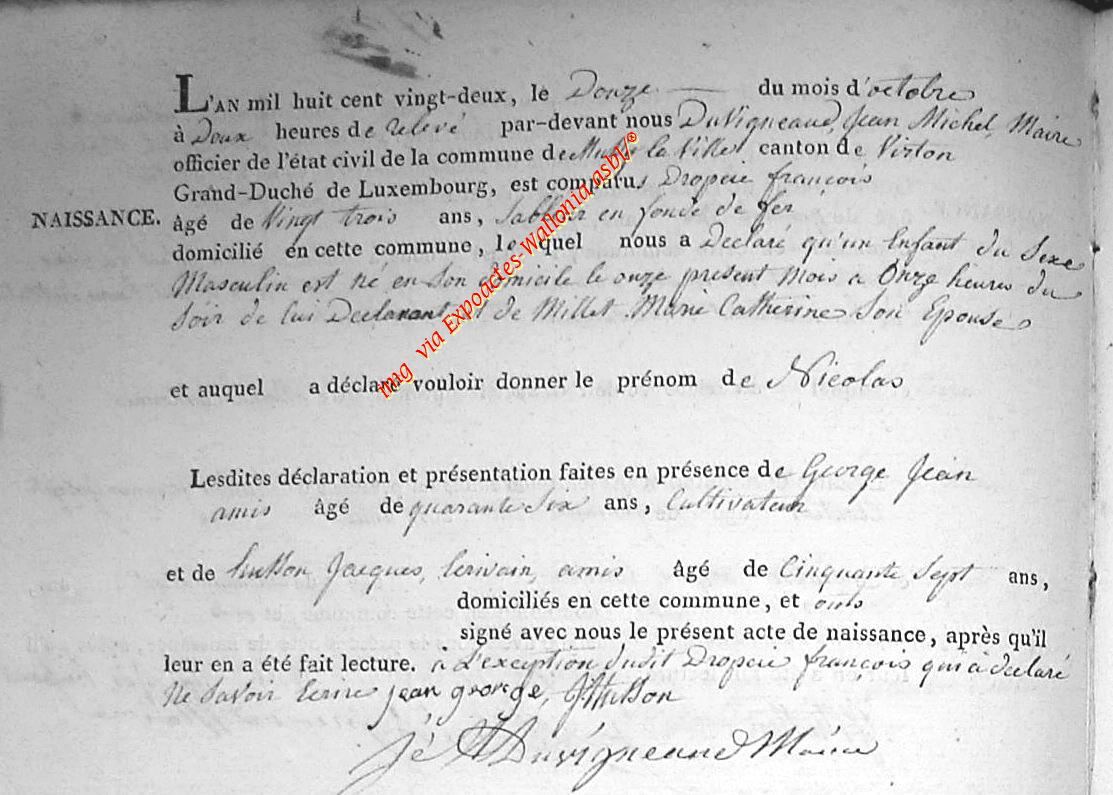 L'AN mil huit cent vingt-deux, le Douze du mois d'octobre
à Deux heures de relevé par-devant nous DuVigneaud, Jean Michel, Maire
officier de l'état civil de la commune de la Ville canton de Virton
Grand-Duché de Luxembourg, est comparus Dropcie françois
NAISSANCE. âgé de Vingt trois ans, Sableur en fonde de fer
domicilié en cette commune, lequel nous a Declaré qu'un Enfant du Sexe
Masculin est né en Son domicile le onze present Mois a Onze heures du
Soir de lui Declarant et de Millet Marie Catherine Son Epouse
et auquel a déclaré vouloir donner le prénom de Nicolas
Lesdites déclaration et présentation faites en présence de George Jean
amis âgé de quarante Six ans, Cultivateur
et de Jacques, Ecrivain, amis âgé de Cinquante Sept ans,
domiciliés en cette commune, et onts
signé avec nous le présent acte de naissance, après qu'il
leur en a été fait lecture. à L'exception dudit Dropcie françois qui à declaré
Ne Savoir Ecrire jean george,
Duvigneaud Maire
img via Expoactes-Wallonia asbl®